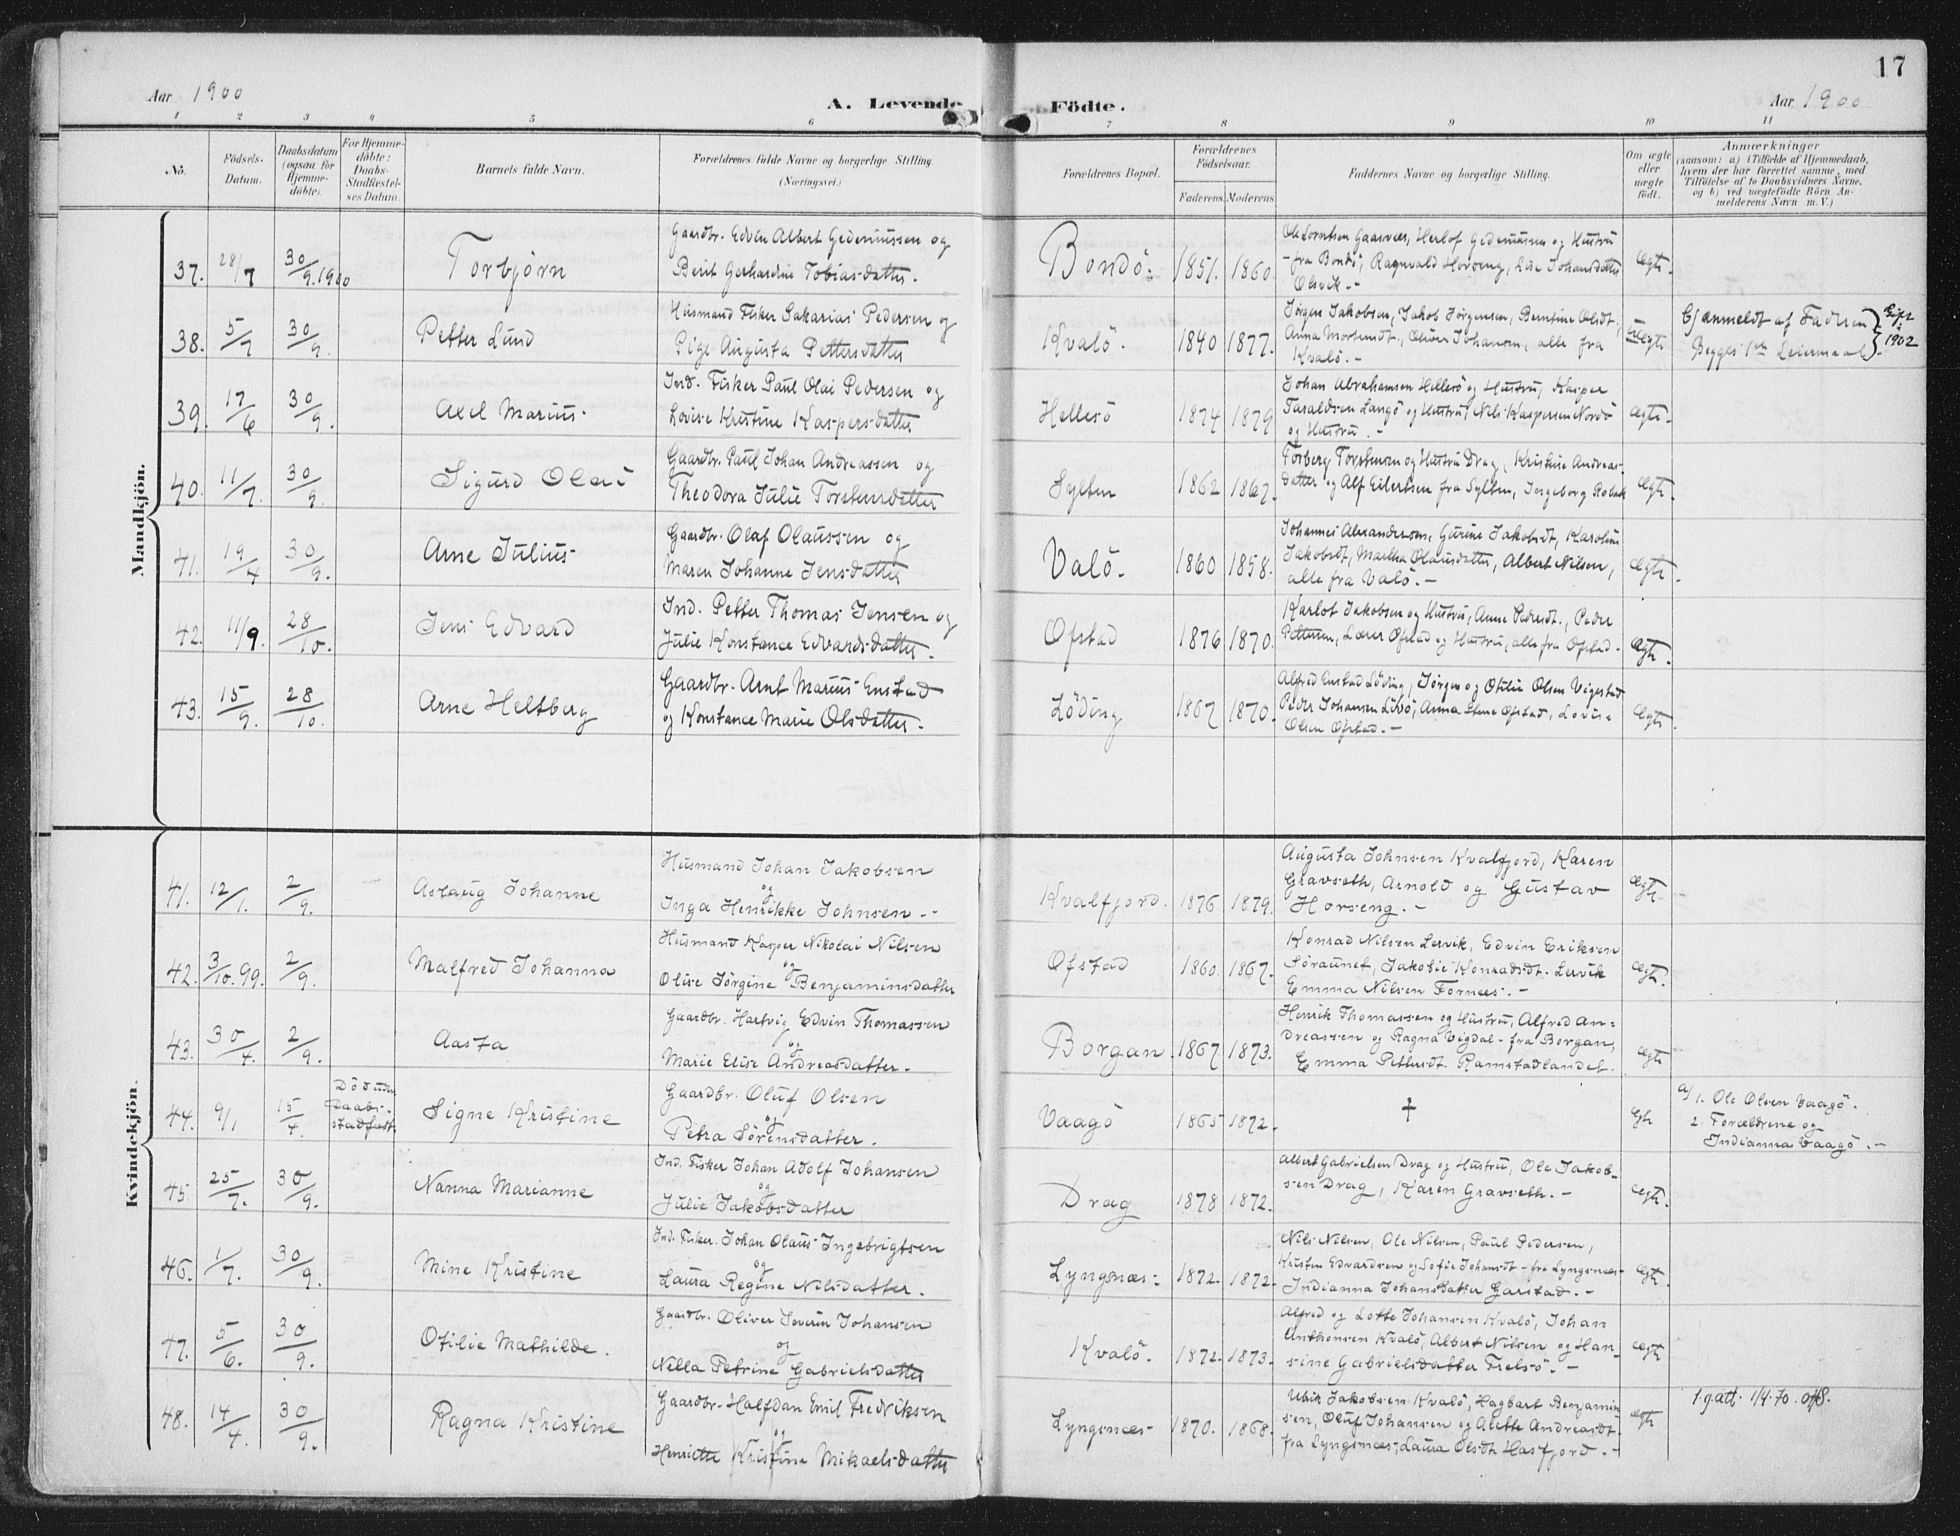 17
Aar 1900
A. Levende Födte.
Aar 1900
1 2 3 4 5 6 7 8 9 10 11
No.
Födsels-Datum.
Daabsdatum (ogsaa for Hjemme-döbte).
For Hjemme-döbte: Daabs-Stadfæstel-ses Datum.
Barnets fulde Navn.
Forældrenes fulde Navne og borgerlige Stilling
(Næringsvei.)
Forældrenes Bopæl.
Forældrenes Födselsaar.
Faderens. Moderens
Faddernes Navne og borgerlige Stilling.
Om ægte eller uægte födt.
Anmærkninger
(saasom: a) i Tilfælde af Hjemmedaab,
hvem der har forrettet samme, med
Tilföielse af to Daabsvidners Navne,
og b) ved uægtefödte Börn An-
melderens Navn m. V.)
Mandkjön.
37. 28/7 30/9.1900 Torbjörn
Gaardbr. Edvin Albert Gedeniussen og
Berit Gerhardine Tobiasdatter.
Bondö. 1851. 1860
Ole Lorntsen Gaasvær, Herlof Gedeniussen og Hustru
- fra Bondö, Ragnvald Horseng, Lise Johansdatter
Olsvik. -
Ægte.
38. 5/7 30/9. Petter Lund
Husmand Fisker Sakarias Pedersen og
Pige Augusta Pettersdatter
Kvalö. 1840 1877.
Jörgen Jakobsen, Jakob Jörgensen, Berntine Olsdt,
Anna Mortensdt., Oliver Johansen, alle fra
Kvalö. -
Uægte
b) anmeldt af Faderen
Begges 1ste Leiermaal.
Gift i 1902
39. 17/6 30/9. Axel Marius
Ind. Fisker Paul Olai Pedersen og
Lovise Kristine Kaspersdatter
Hellesö 1874 1879
Johan Abrahamsen Hellesö og Hustru, Kasper
Taraldsen Langö og Hustru, Nils Kaspersen Nordö
og Hustru. -
ægte.
40. 11/7. 30/9. Sigurd Olai
Gaardbr. Paul Johan Andreassen og
Theodora Julie Torstensdatter
Sylten 1862 1867.
Torberg Torstensen og Hustru Drag, Kristine Andreas-
datter og Alf Eilertsen fra Sylten, Ingeborg Robak
Ægte.
41. 19/4 30/9. Arne Julius
Gaardbr. Olaf Olaussen og
Maren Johanne Jensdatter
Valö. 1860 1858.
Johannes Alexandersen, Gurine Jakobsdt, Karoline
Jakobsdt, Martha Olausdatter, Albert Nilsen,
alle fra Valö. -
Ægte.
42. 11/9. 28/10. Jens Edvard
Ind. Petter Thomas Jensen og
Julie Konstance Edvardsdatter.
Ofstad 1876 1870.
Karlot Jakobsen og Hustru, Anne Pedersdt., Peder
Pettersen, Lærer Ofstad og Hustru, alle fra Ofstad.
Ægte.
43. 15/9. 28/10. Arne Heltberg
Gaardbr. Arnt Marius Enstad
og Konstance Marie Olsdatter.
Löding 1867 1870.
Alfred Enstad Löding, Jörgen og Otilie Olsen Vigestad
Peder Johansen Livö, Anna Stene Ofstad, Lovise
Olsen Ofstad. -
Ægte.
Kvindekjön.
41. 12/1. 2/9. Aslaug Johanne
Husmand Johan Jakobsen
og
Inga Henrikke Johnsen
Kvalfjord. 1876 1879.
Augusta Johnsen Kvalfjord, Karen
Gravseth, Arnold og Gustav
Horseng. -
Ægte.
42. 3/10.99. 2/9. Malfred Johanna
Husmand Kasper Nikolai Nilsen
og
Olise Jörgine Benjaminsdatter
Ofstad 1860. 1867.
Konrad Nilsen Lervik, Edvin Eriksen
Söraunet, Jakobie Konradsdt. Lervik
Emma Nilsen Fornæs. -
Ægte.
43. 30/4. 2/9. Aasta
Gaardbr. Hartvig Edvin Thomassen
og
Marie Elise Andreasdatter.
Borgan. 1867 1873.
Henrik Thomassen og Hustru, Alfred An-
dreassen og Ragna Vigdal - fra Borgan,
Emma Pettersdt. Ramstadlandet.
ægte
44. 9/1 15/4. Död uden Daabs-stadfest. Signe Kristine
Gaardbr. Oluf Olsen
og
Petra Sörensdatter.
Vaagö 1865 1872.
†
a/ 1. Ole Olsen Vaagö.
2. Forældrene og
Indianna Vaagö. -
45. 25/7. 30/9. Nanna Marianne
Ind. Fisker Johan Adolf Johansen
og
Julie Jakobsdatter
Drag 1878 1872.
Albert Gabrielsen Drag og Hustru, Ole Jakob-
sen Drag, Karen Gravseth. -
Ægte.
46. 1/7. 30/9. Mine Kristine
Ind. Fisker. Johan Olaus Ingebrigtsen
og
Laura Regine Nilsdatter.
Lyngsnæs. 1872. 1872.
Nils Nilsen, Ole Nilsen, Paul Pedersen,
Kristen Edvardsen og Sofie Johansdt - fra Lyngsnæs
Indianna Johansdatter Garstad. -
Ægte.
47. 5/6. 30/9. Otilie Mathilde.
Gaardbr. Oliver Severin Johansen
og
Nilla Petrine Gabrielsdatter
Kvalö. 1872. 1873.
Alfred og Lotte Johansen Kvalö, Johan
Anthonsen Kvalö, Albert Nilsen og Han-
sine Gabrielsdatter Frelsö. -
Ægte
48. 14/4. 30/9. Ragna Kristine
Gaardbr. Halfdan Emil Fredriksen
og
Henriette Kristine Mikaelsdatter
Lyngsnæs 1870. 1868.
Ulrik Jakobsen Kvalö, Hagbart Benjamin-
sen, Oluf Johansen og Alette Andreasdt.
fra Lyngsnæs, Laura Olsdt Hasfjord. -
ægte
1.g.att. 1/4.70.